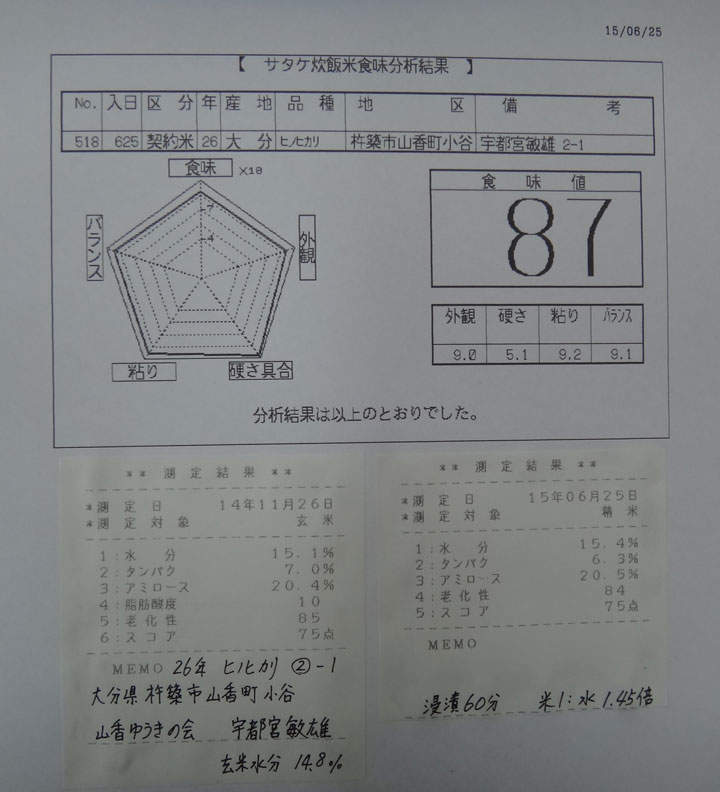 15/06/25
【 サタケ炊飯米食味分析結果 】
No. 入日 区分 年 産地 品種 地区 備考
518 625 契約米 26 大分 ヒノヒカリ 杵築市山香町小谷 宇都宮敏雄 2-1
食味 X10
7
4
バランス
外観
粘り
硬さ具合
食味値
87
外観 硬さ 粘り バランス
9.0 5.1 9.2 9.1
分析結果は以上のとおりでした。
** 測定結果 **
*測定日 14年11月26日
*測定対象 玄米
1:水分 15.1%
2:タンパク 7.0%
3:アミロース 20.4%
4:脂肪酸度 10
5:老化性 85
6:スコア 75点
MEMO 26年 ヒノヒカリ ②-1
大分県杵築市山香町小谷
山香ゆうきの会 宇都宮敏雄
玄米水分 14.8%
** 測定結果 **
*測定日 15年06月25日
*測定対象 精米
1:水分 15.4%
2:タンパク 6.3%
3:アミロース 20.5%
4:老化性 84
5:スコア 75点
MEMO
浸漬60分 米1:水1.45倍